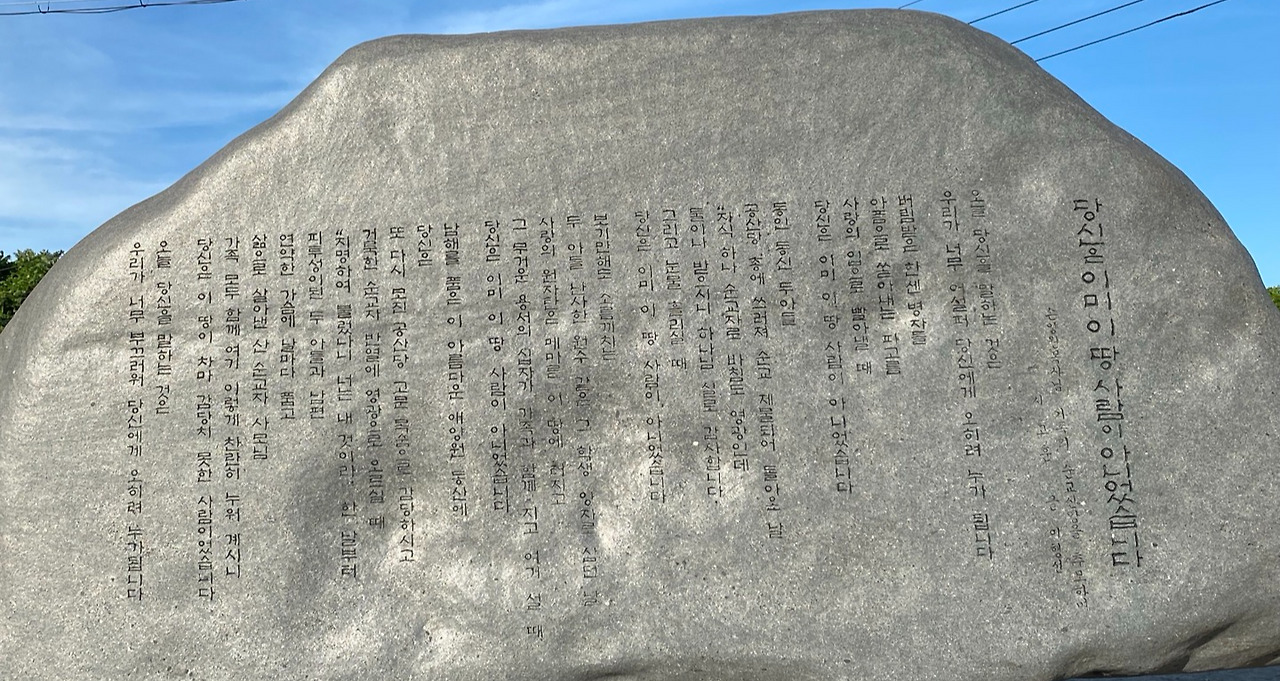 당신은 이미 이 땅 사람이 아니었습니다
오늘 당신을 말하는 것은
우리가 너무 어설퍼 당신에게 오히려 누가 됩니다
버림받은 한센 병자를
아픔으로 쏟아내는 피고름
사랑의 입으로 빨아낼 때
당신은 이미 이 땅 사람이 아니었습니다
동인 동신 두 아들
공산당 총에 쓰러져 순교 제물되어 돌아온 날
"자식 하나 순교자로 바침도 영광인데
둘이나 받으시니 하나님 실로 감사합니다"
그리고 눈물 흘리실 때
당신은 이미 이 땅 사람이 아니었습니다
보기만해도 소름끼치는
두 아들 난사한 원수 같은 그 학생 양자로 삼던 날
사랑의 원자탄은 메아리로 이 땅에 터지고
그 무거운 용서의 십자가 가족과 함께 지고 여기 설 때
당신은 이미 이 땅 사람이 아니었습니다
밤해를 품은 이 아름다운 애양원 동산에
당신은
또 다시 모진 공산당 고문 목숨으로 감당하시고
거룩한 순교자 반열에 영광으로 오르실 때
"지명하여 불렀나니 너는 내 것이라" 한 말부터
피투성이된 두 아들과 남편
연약한 가슴에 날마다 품고
삶으로 살아낸 산 순교자 사모님
가족 모두 함께 여기 이렇게 찬란히 누워 계시니
당신은 이 땅이 차마 감당치 못한 사람이었습니다
오늘 당신을 말하는 것은
우리가 너무 부끄러워 당신에게 오히려 누가됩니다